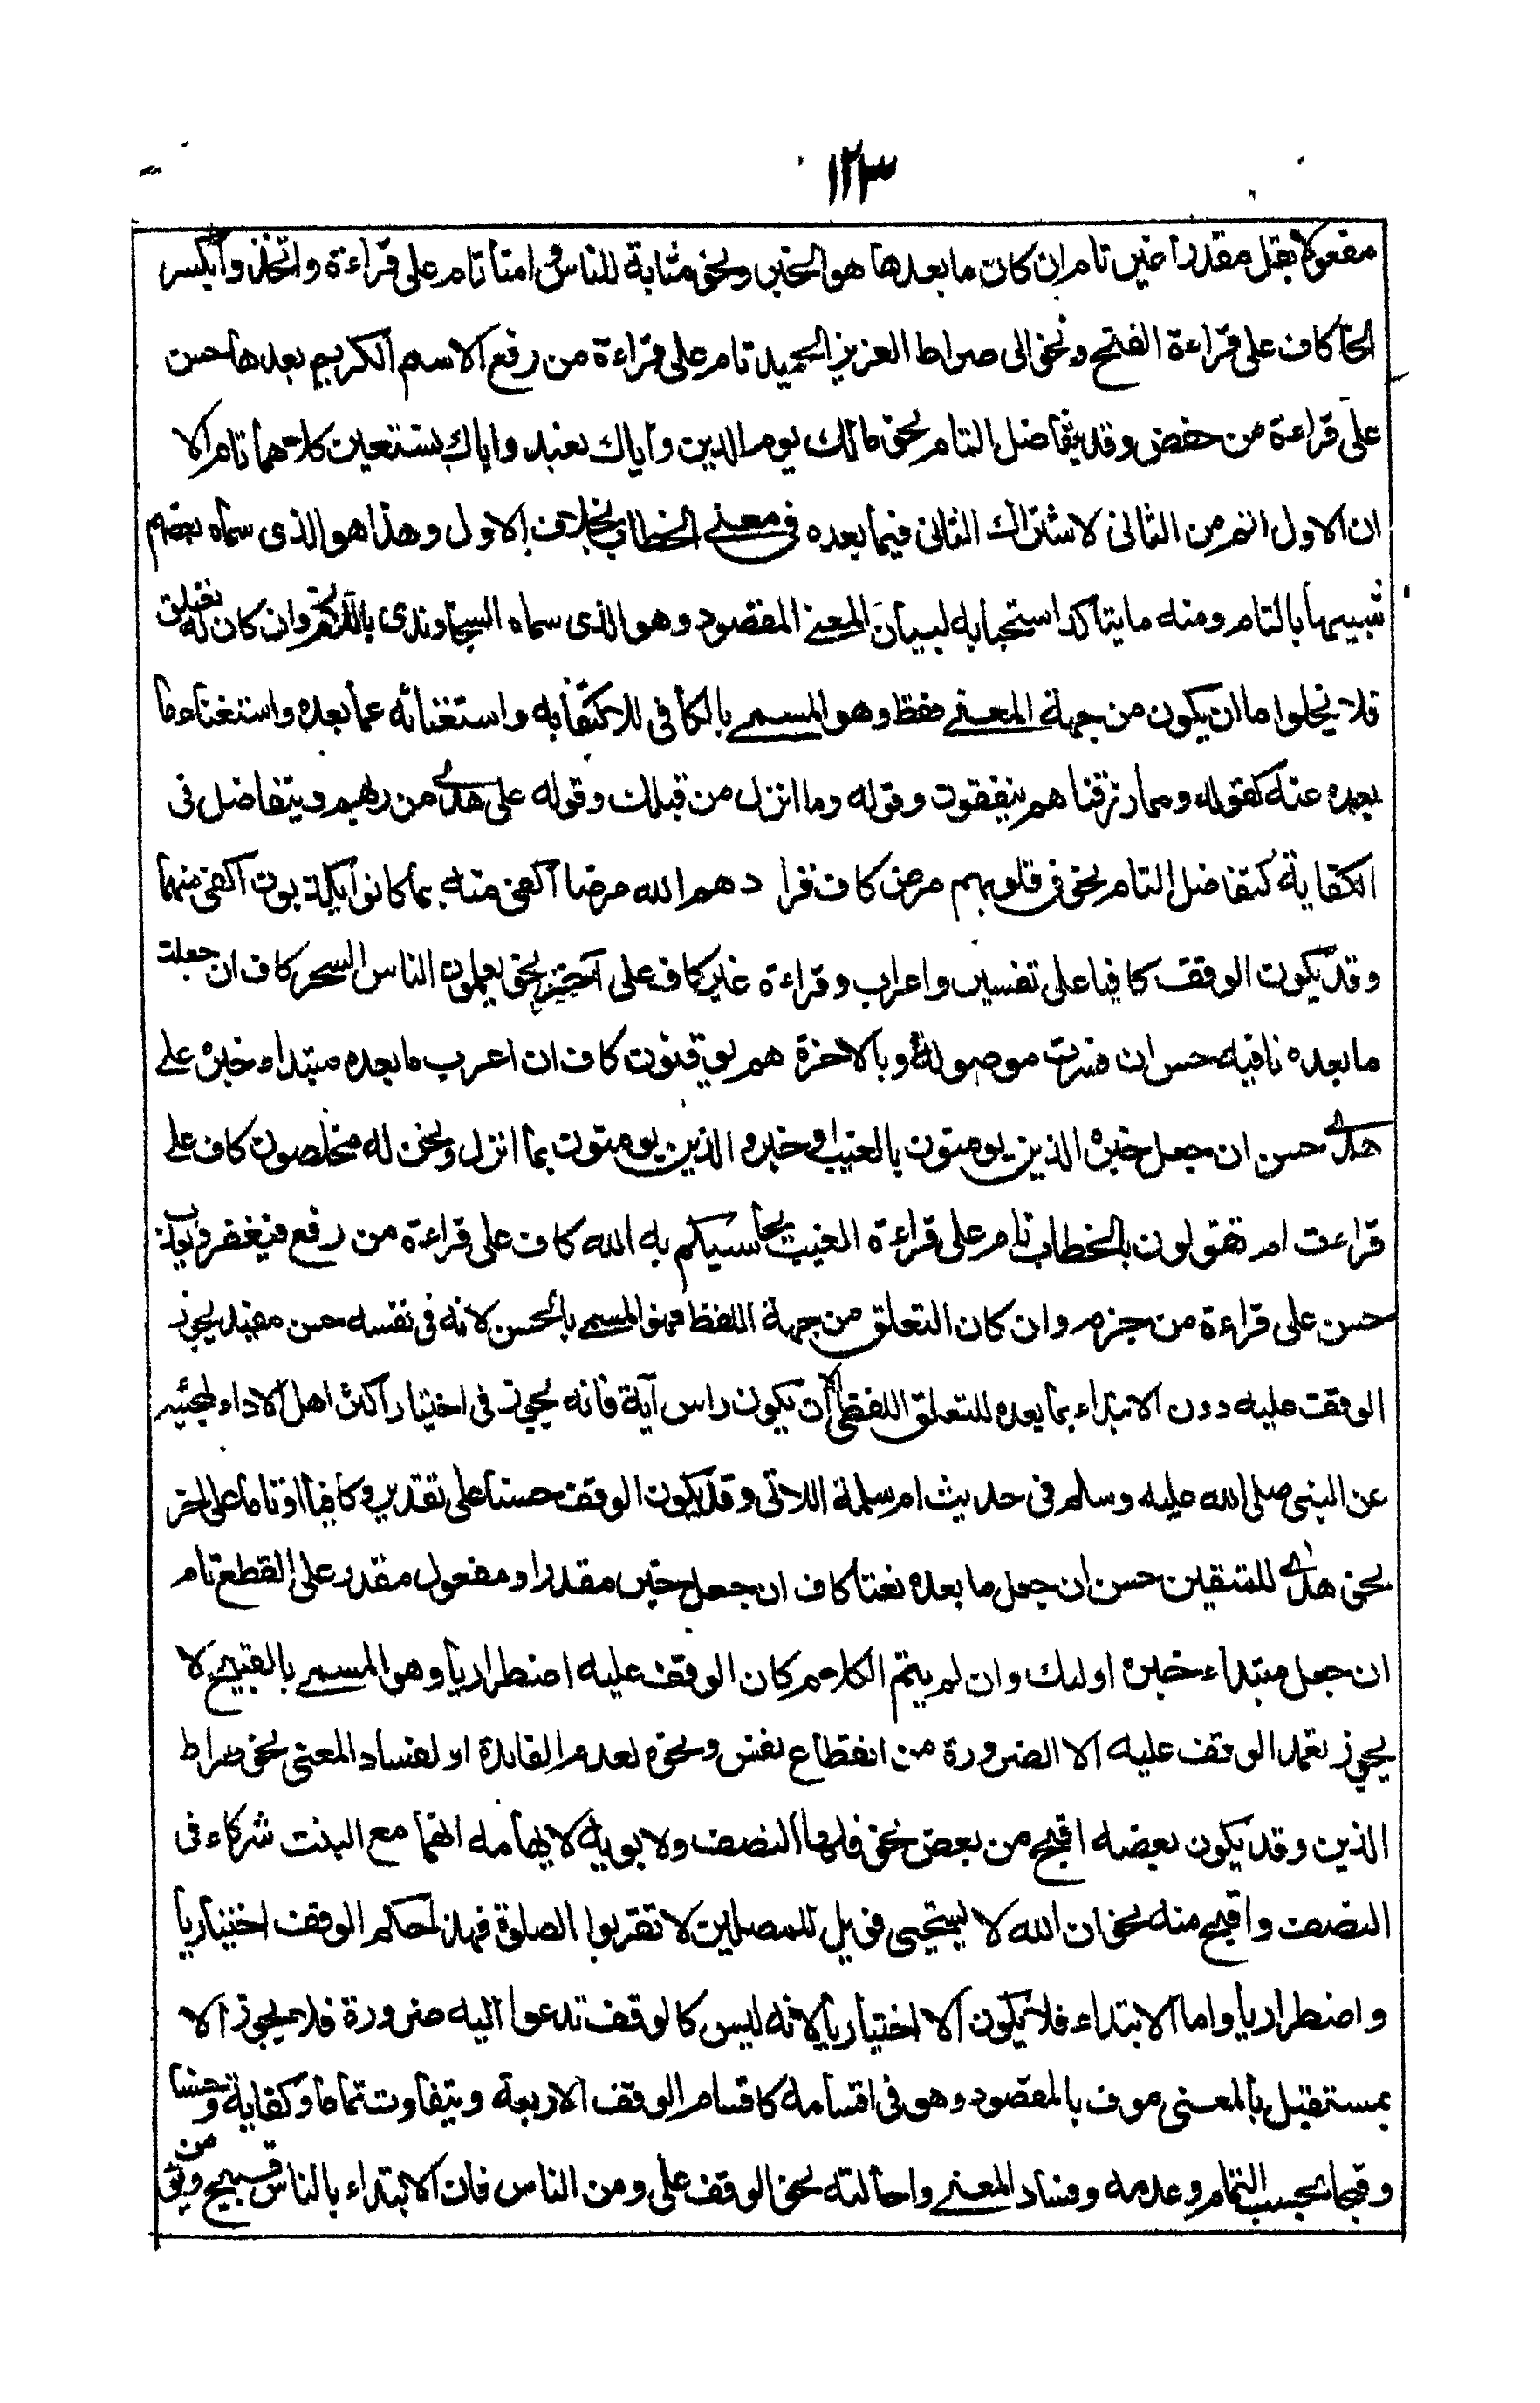 ١٢٣
مفعولا بقل مقدرا غير تام ان كان ما بعدها هو الخبر ونحو مثابة للناس وامنا تام على قراءة واتخذوا بكسر
الخا كاف على قراءة الفتح ونحو الى صراط العزيز الحميد تام على قراءة من رفع الاسم الكريم بعدها حسن
على قراءة من خفض وقد يتفاضل التام نحو مالك يوم الدين واياك نعبد واياك نستعين كلاهما تام الا
ان الاول اتم من الثانى لاشتراك الثانى فيما بعده فى معنى الخطاب بخلاف الاول وهذا هو الذى سماه بعضهم
شبيها بالتام ومنه ما يتأكد استحبابه لبيان المعنى المقصود وهو الذى سماه السجاوندى باللازم وان كان له تعلق
فلا يخلوا اما ان يكون من جهة المعنى فقط وهو المسمى بالكافى للاكتفا به واستغنائه عما بعده واستغناء ما
بعده عنه كقوله ومما رزقناهم ينفقون وقوله وما انزل من قبلك وقوله على هدى من ربهم ويتفاضل فى
الكفاية كتفاضل التام نحو فى قلوبهم مرض كاف فزادهم الله مرضا اكفى منه بما كانوا يكذبون اكفى منهما
وقد يكون الوقف كافيا على تفسير واعراب وقراءة غير كاف على آخر نحو يعلمون الناس السحر كاف ان جعلت
ما بعده نافيه حسن ان فسرت موصولة وبالاخرة هم يوقنون كاف ان اعرب ما بعده مبتداء خبره على
هدى حسن ان جعل خبره الذين يومنون بالغيب او خبره والذين يومنون بما انزل ونحو له مخلصون كاف على
قراءت ام تقولون بالخطاب تام على قراءة الغيب يحاسبكم به الله كاف على قراءة من رفع فيغفر ويعذب
حسن على قراءة من جزم وان كان التعلق من جهة اللفظ فهو المسمى بالحسن لانه فى نفسه حسن مفيد يجوز
الوقف عليه دون الابتداء بما بعده للتعلق اللفظى الا ان يكون راس آية فانه يجوز فى اختيار اكثر اهل الاداء لمجيئه
عن النبى صلى الله عليه وسلم فى حديث ام سلمة اللاتى وقد يكون الوقف حسنا على تقدير وكافيا او تاما على اخر
نحو هدى للمتقين حسن ان جعل ما بعده نعتا كاف ان جعل خبر مقدر او مفعول مقدر على القطع تام
ان جعل مبتداء خبره اولئك وان لم يتم الكلام كان الوقف عليه اضطراريا وهو المسمى بالقبيح لا
يجوز تعمد الوقف عليه الا الضرورة من انقطاع نفس ونحوه لعدم الفايدة او لفساد المعنى نحو صراط
الذين وقد يكون بعضه اقبح من بعض نحو فلها النصف ولابويه لايهامه انهما مع البنت شركاء فى
النصف واقبح منه نحو ان الله لا يستحيى فويل للمصلين لا تقربوا الصلوة فهذا حكم الوقف اختياريا
واضطراريا واما الابتداء فلا يكون الا اختياريا لانه ليس كالوقف تدعوا اليه ضرورة فلا يجوز الا
بمستقل بالمعنى موف بالمقصود وهو فى اقسامه كاقسام الوقف الاربعة ويتفاوت تماما وكفاية وحسنا
وقبحا بحسب التمام وعدمه وفساد المعنى واحالته نحو الوقف على ومن الناس فان الابتداء بالناس قبيح وبمن